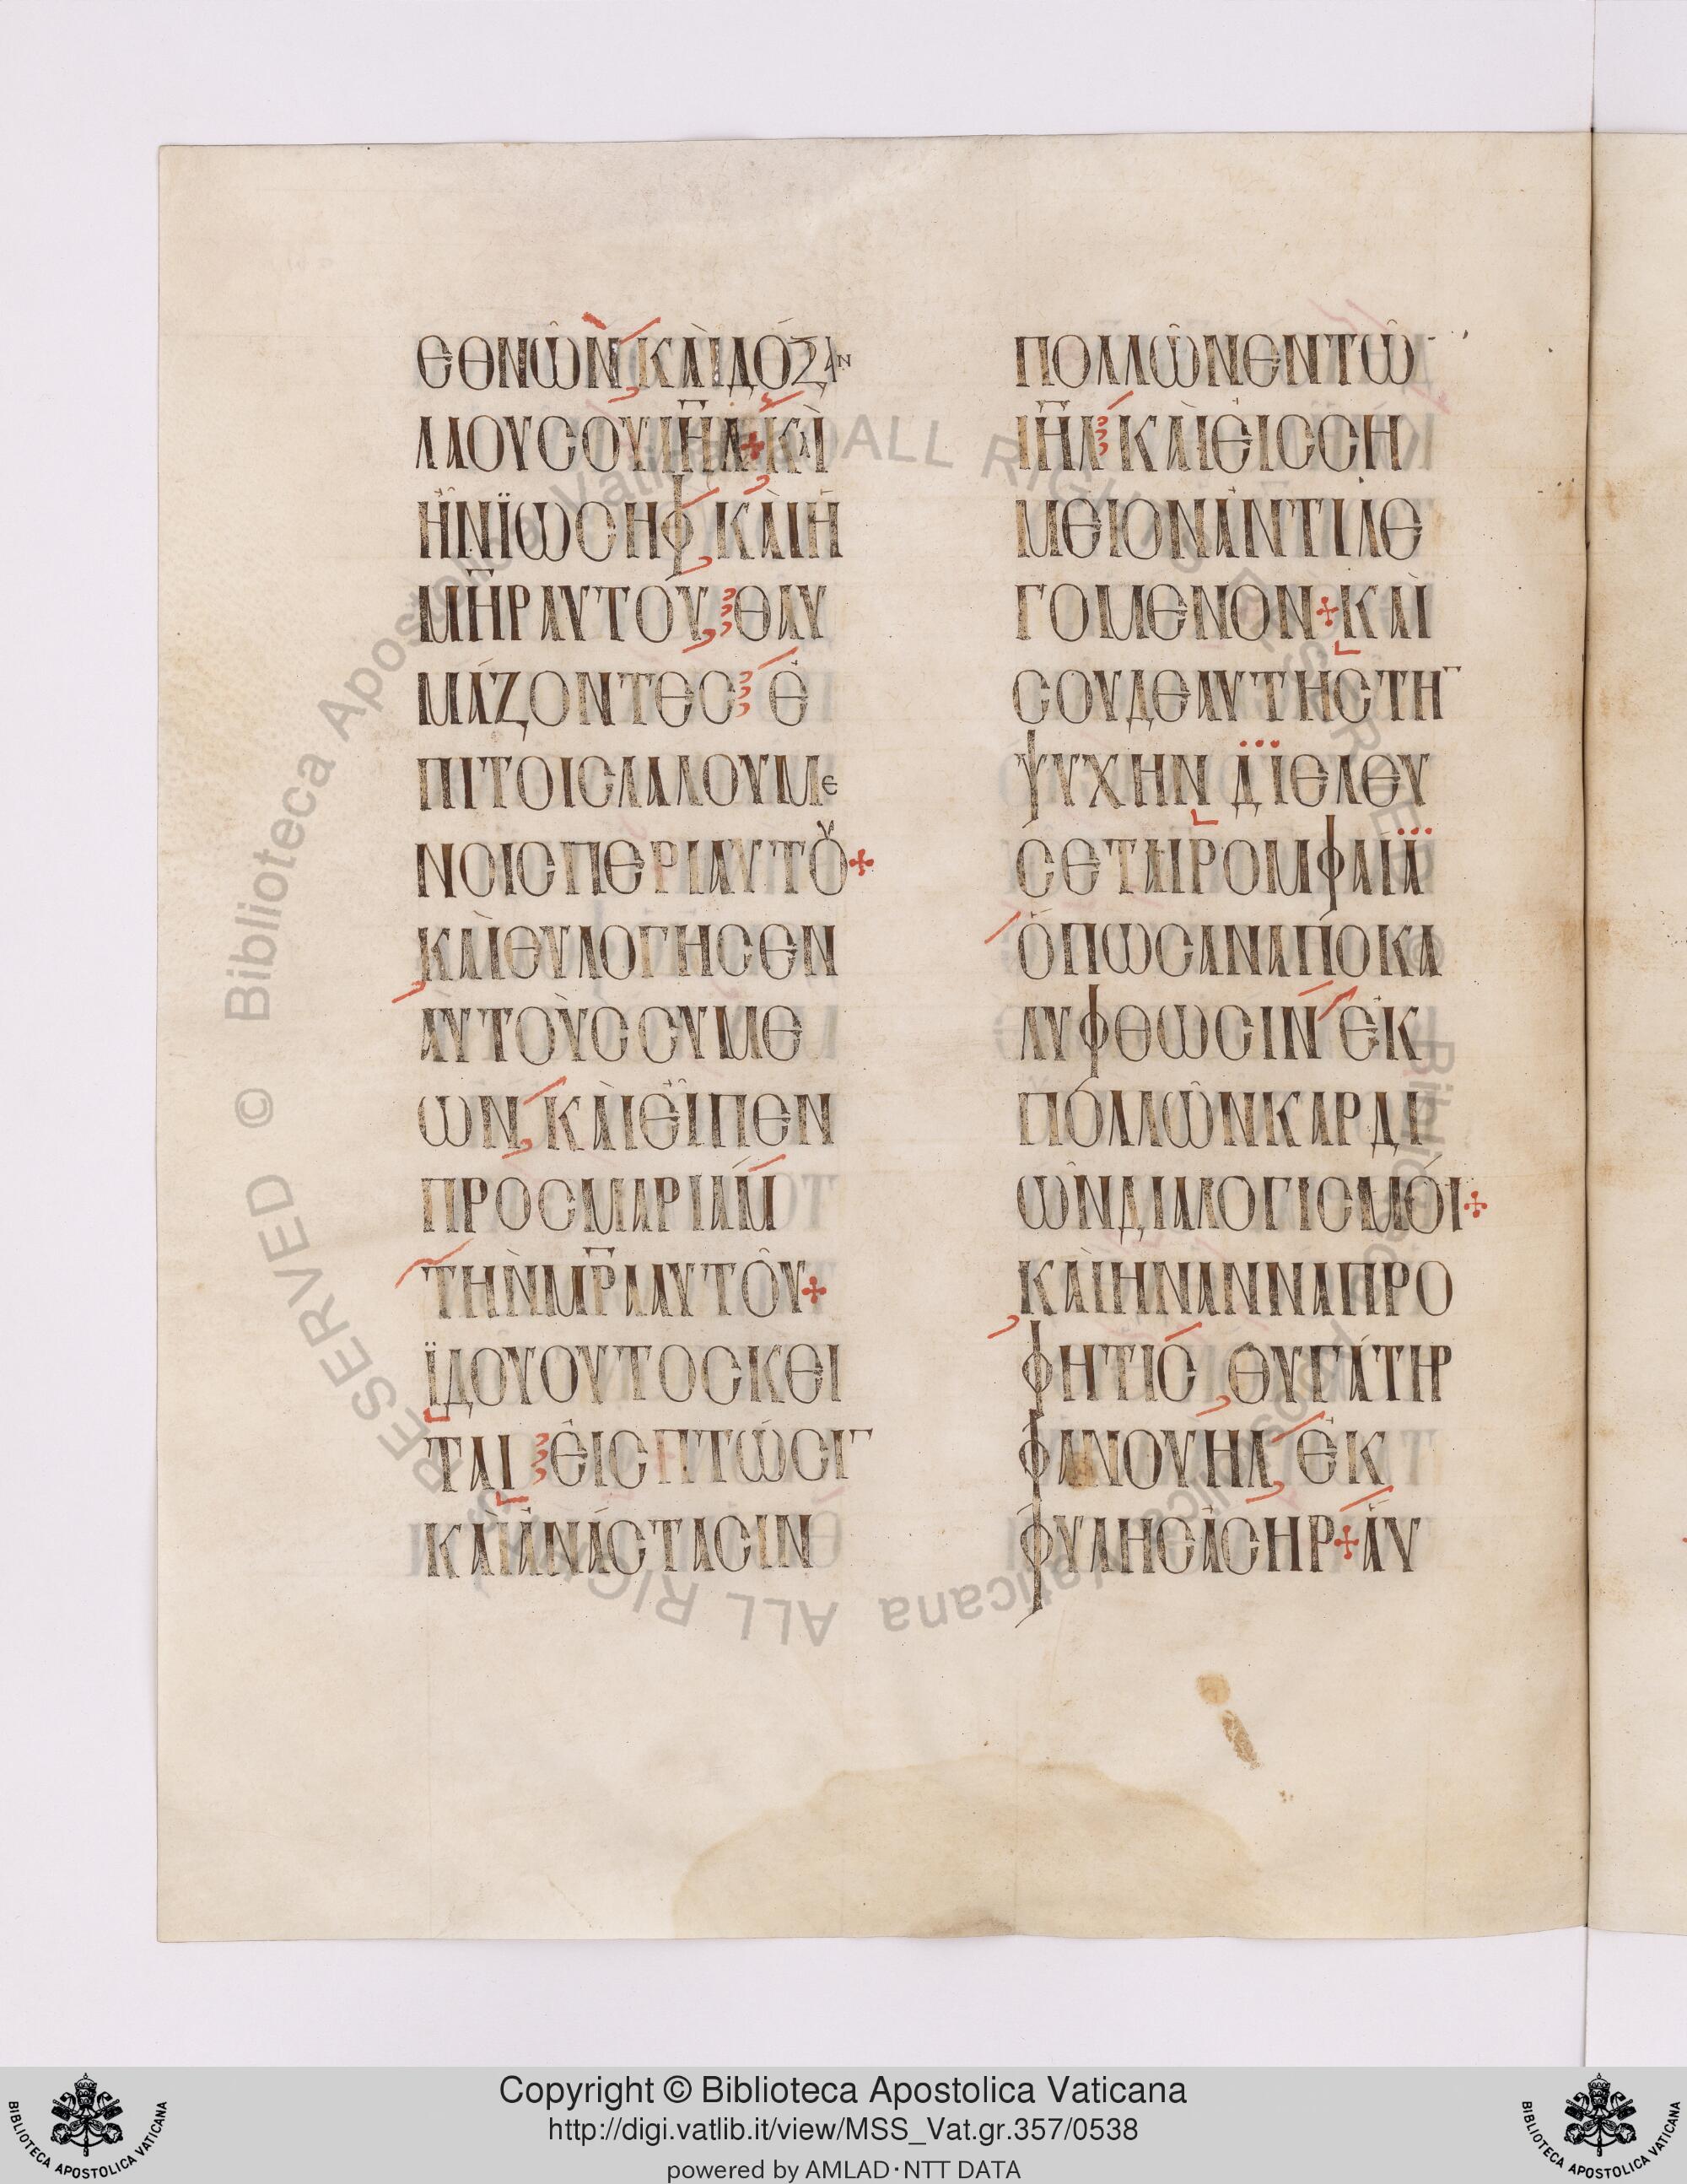 ΕΘΝΩ͂Ν ΚΑῚ ΔΌΞΑΝ
ΛΑΟΥ ΣΟΥ ΙΗ̅Λ + ΚΑῚ
ἮΝ ΪΩΣΗΦ ΚΑῚ Ἡ
ΜΗ̅Ρ ΑΥΤΟΥ ΘΑΥ
ΜΆΖΟΝΤΕΣ Ἐ
ΠΙ ΤΟΙΣ ΛΑΛΟΥΜΕ
ΝΟΙΣ ΠΕΡΙ ΑΥΤΟΥ +
ΚΑῚ ΕΥΛΟΓΗΣΕΝ
ΑΥΤΟῪΣ ΣΥΜΕ
ΩΝ ΚΑῚ ΕἾΠΕΝ
ΠΡΟΣ ΜΑΡΙΆΜ
ΤῊΝ ΜΡ̅Α ΑΥΤΟΥ͂ +
ΪΔΟΥ ΟΥΤΟΣ ΚΕΙ
ΤΑΙ ΕἸΣ ΠΤΩ͂ΣΙΝ
ΚΑῚ ἈΝΆΣΤΑΣΙΝ
ΠΟΛΛΩ͂Ν ΕΝ ΤΩ͂
ΙΗ̅Λ ΚΑῚ ΕἸΣ ΣΗ
ΜΕΙΟΝ ἈΝΤΙΛΕ
ΓΟΜΕΝΟΝ + ΚΑῚ
ΣΟΥ ΔΕ ΑΥΤΗΣ ΤΗΝ
ΨΥΧΗΝ ΔΙΕΛΕΥ
ΣΕΤΑΙ ΡΟΜΦΑΙΑ
ὍΠΩΣ ΑΝ ΑΠΟΚΑ
ΛΥΦΘΩΣΙΝ ἘΚ
ΠΟΛΛΩ͂Ν ΚΑΡΔΙ
Ω͂Ν ΔΙΑΛΟΓΙΣΜΟΊ +
ΚΑῚ ΗΝ ΑΝΝΑ ΠΡΟ
ΦΗΤΙΣ ΘΥΓΆΤΗΡ
ΦΑΝΟΥΗΛ ἘΚ
ΦΥΛΗΣ ἈΣΗΡ + ΑΥ
Copyright © Biblioteca Apostolica Vaticana
http://digi.vatlib.it/view/MSS_Vat.gr.357/0538
powered by AMLAD·NTT DATA
BIBLIOTECA APOSTOLICA VATICANA
BIBLIOTECA APOSTOLICA VATICANA
© Biblioteca Apostolica Vaticana ALL RIGHTS RESERVED
© Biblioteca Apostolica Vaticana ALL RIGHTS RESERVED